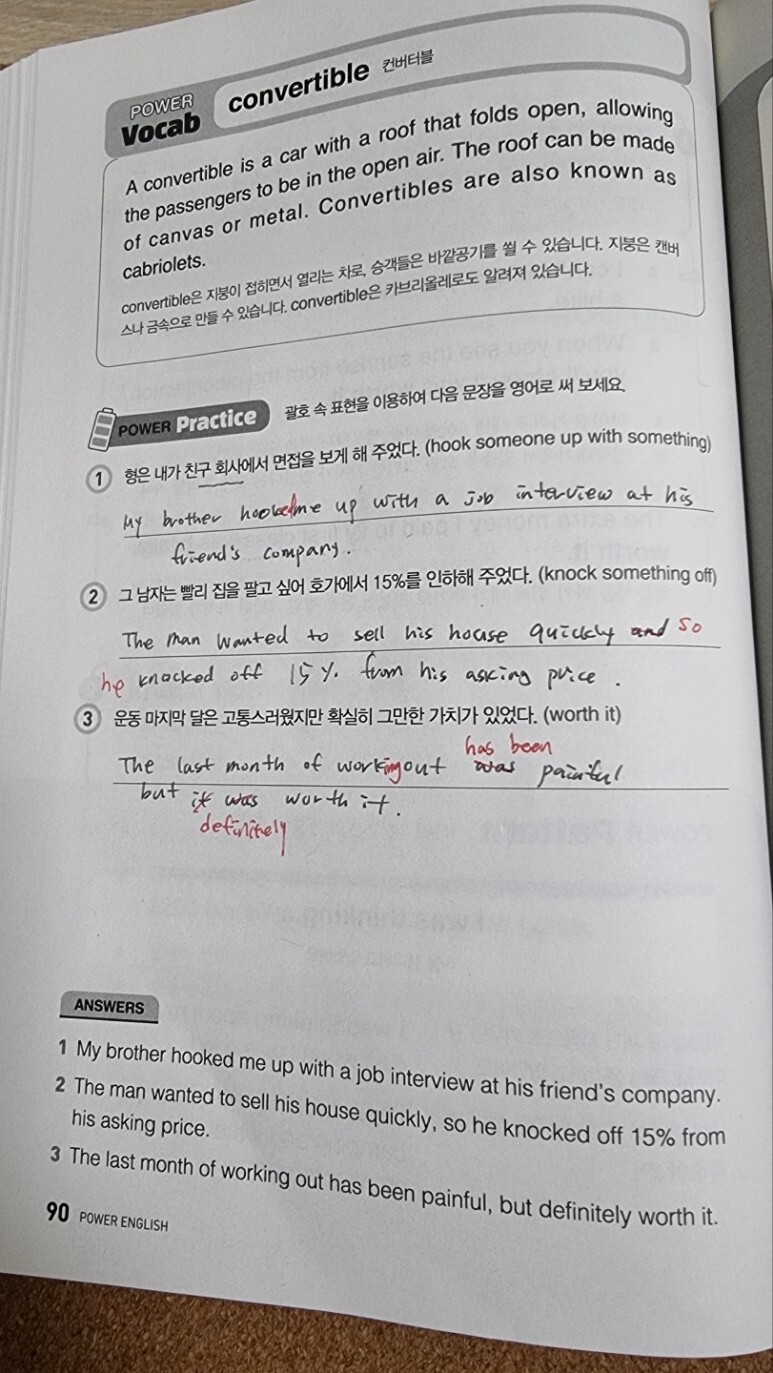 POWER
Vocab
convertible 컨버터블
A convertible is a car with a roof that folds open, allowing
the passengers to be in the open air. The roof can be made
of canvas or metal. Convertibles are also known as
cabriolets.
convertible은 지붕이 접히면서 열리는 차로, 승객들은 바깥공기를 쐴 수 있습니다. 지붕은 캔버
스나 금속으로 만들 수 있습니다. convertible은 카브리올레로도 알려져 있습니다.
POWER Practice 괄호 속 표현을 이용하여 다음 문장을 영어로 써 보세요.
1 형은 내가 친구 회사에서 면접을 보게 해 주었다. (hook someone up with something)
My brother hooked me up with a job interview at his
friend's company.
2 그 남자는 빨리 집을 팔고 싶어 호가에서 15%를 인하해 주었다. (knock something off)
The man wanted to sell his house quickly and so
he knocked off 15%. from his asking price.
3 운동 마지막 달은 고통스러웠지만 확실히 그만한 가치가 있었다. (worth it)
has been
The last month of workingout was painful
but it was worth it.
definitely
ANSWERS
1 My brother hooked me up with a job interview at his friend's company.
2 The man wanted to sell his house quickly, so he knocked off 15% from
his asking price.
3 The last month of working out has been painful, but definitely worth it.
90 POWER ENGLISH